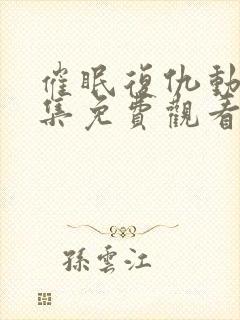 催眠復仇動
集免費觀看
孫雲江